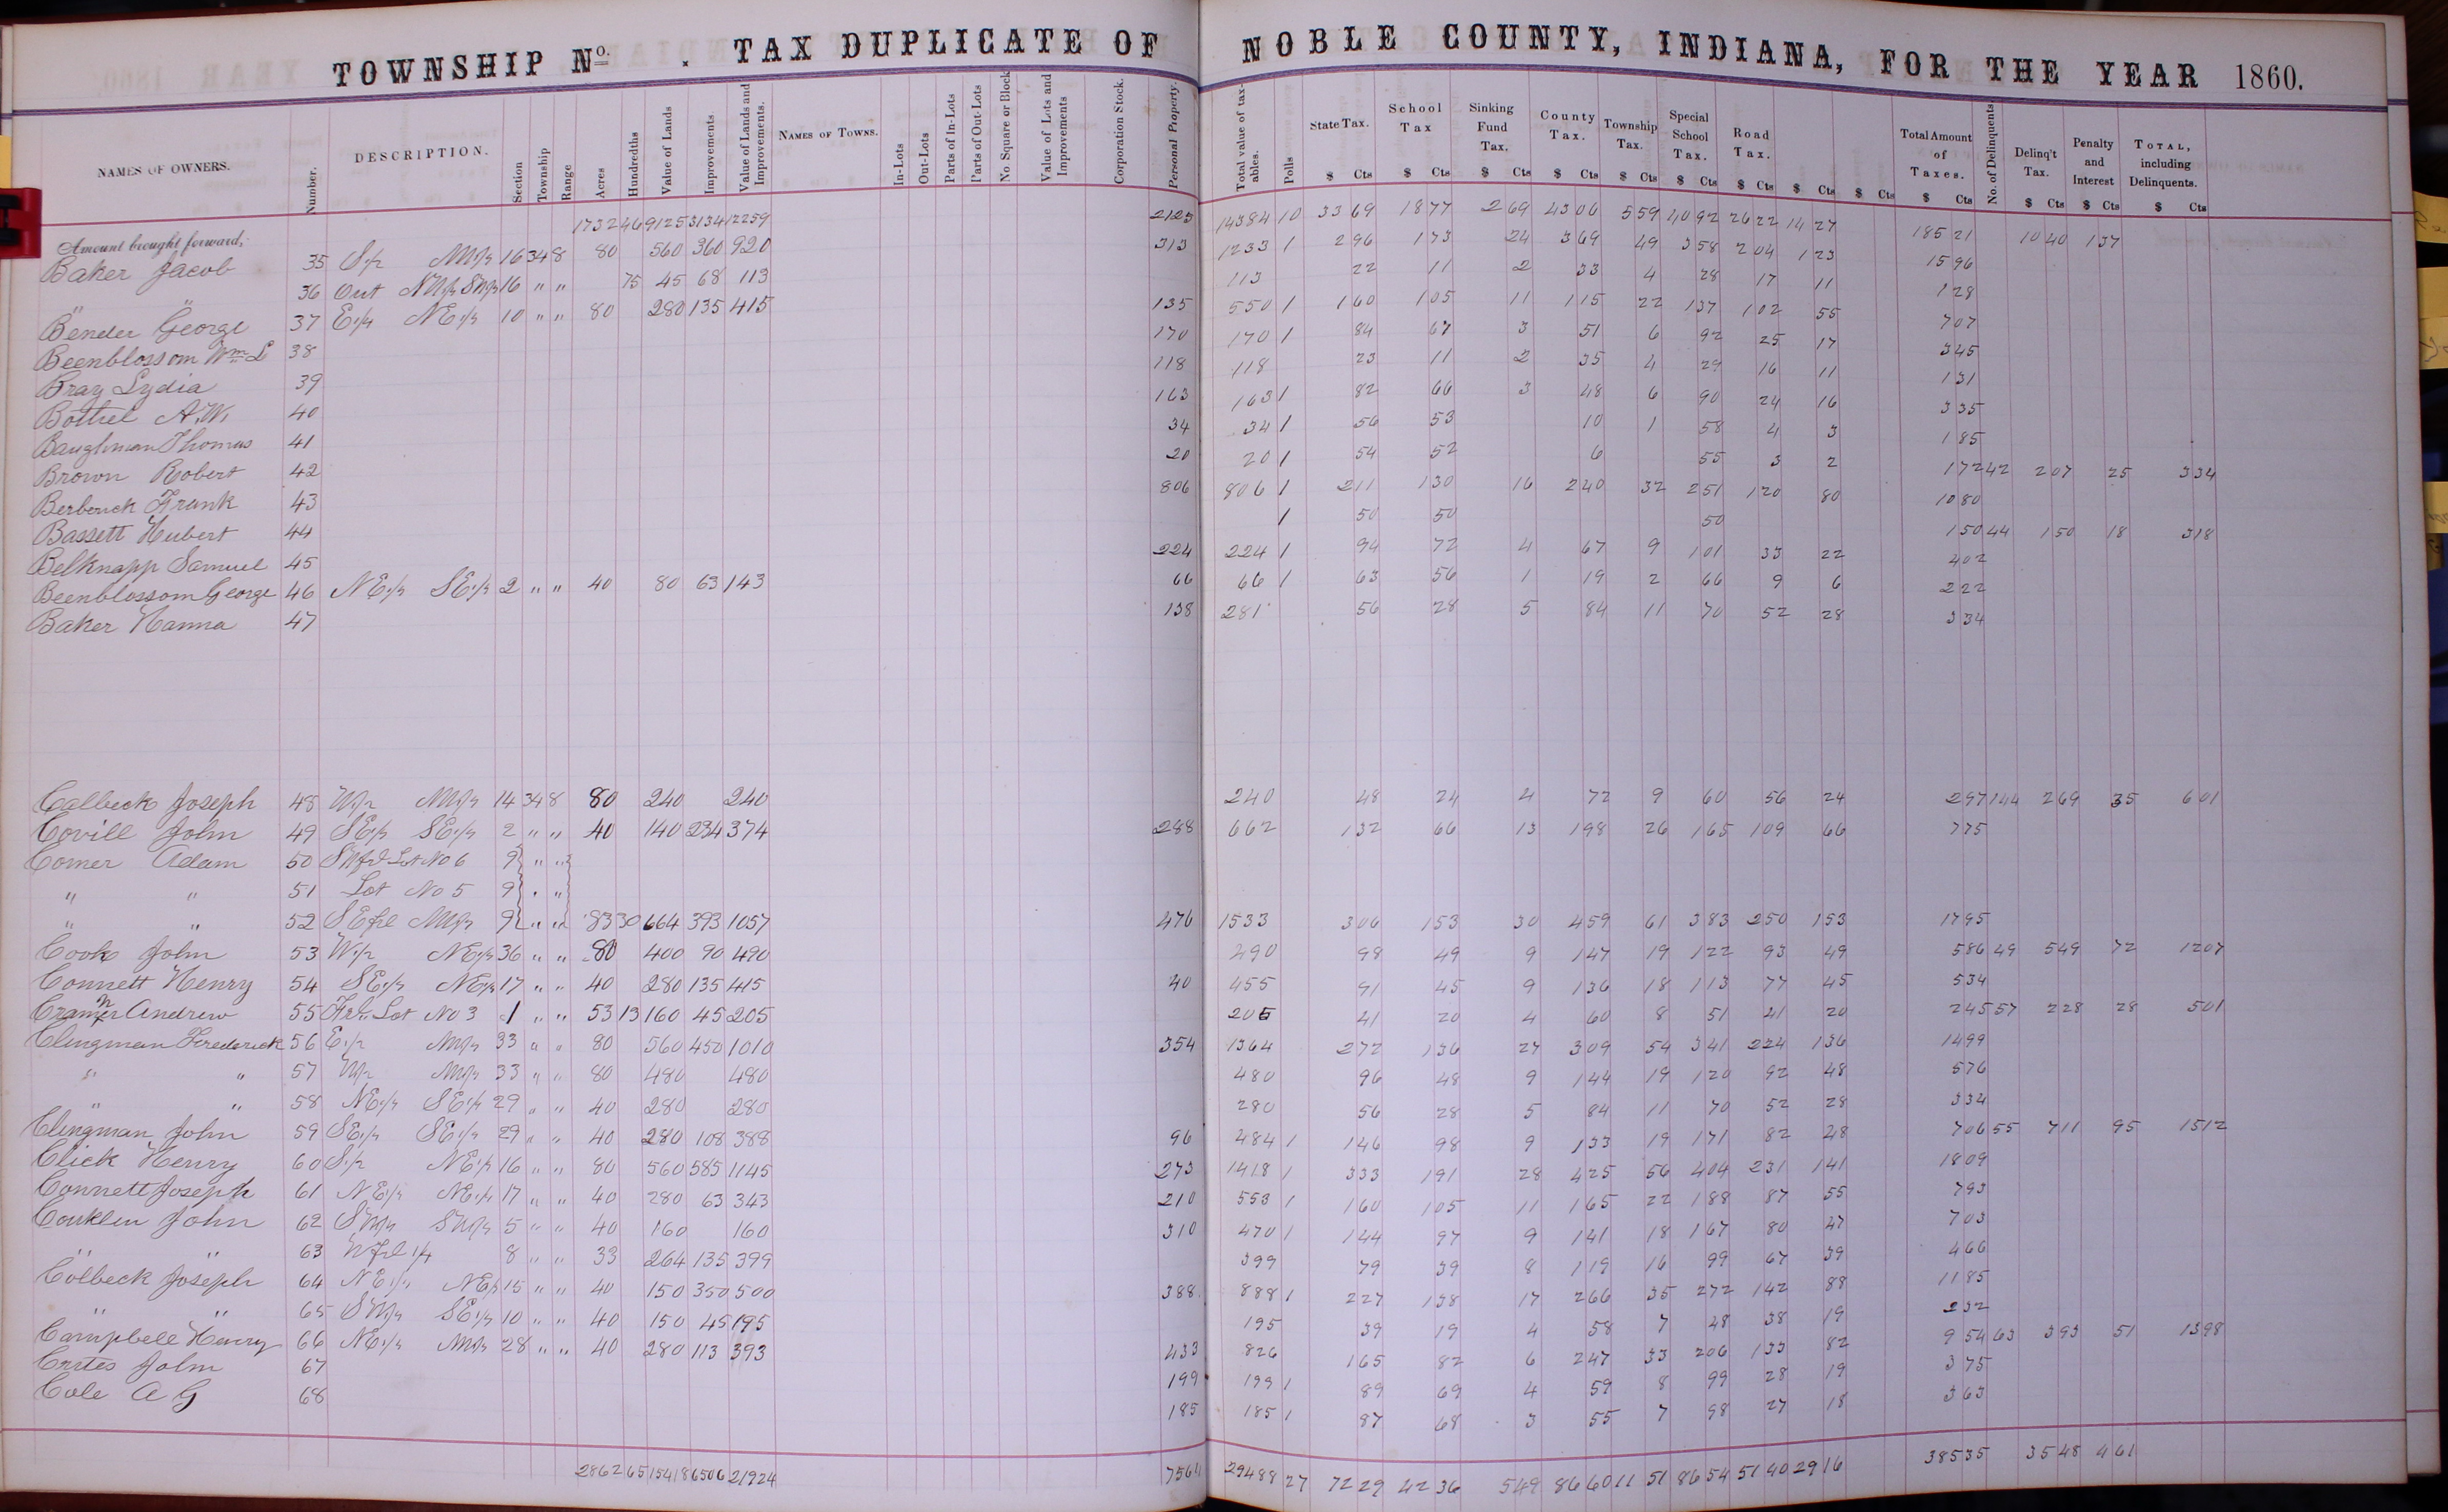 TOWNSHIP No. . TAX DUPLICATE OF NOBLE COUNTY, INDIANA, FOR THE YEAR 1860.
NAMES OF OWNERS. Number. DESCRIPTION. Section Township Range Acres Hundredths Value of Lands Improvements Value of Lands and Improvements. NAMES OF TOWNS. In-Lots Out-Lots Parts of In-Lots Parts of Out-Lots No Square or Block Value of Lots and Improvements Corporation Stock. Personal Property. Total value of taxables. Polls State Tax. School Tax Sinking Fund Tax. County Tax. Township Tax. Special School Tax. Road Tax. Total Amount of Taxes. No. of Delinquents Delinq't Tax. Penalty and Interest TOTAL, including Delinquents.
$ Cts $ Cts $ Cts $ Cts $ Cts $ Cts $ Cts $ Cts $ Cts $ Cts $ Cts $ Cts $ Cts
Amount brought forward, 1732 46 9125 3134 12259 2125 14384 10 33 69 18 77 2 69 43 06 5 59 40 92 26 22 14 27 185 21 10 40 1 37
Baker Jacob 35 S1/2 NW1/4 16 34 8 80 560 360 920 313 1233 1 2 96 1 73 24 3 69 49 3 58 2 04 1 23 15 96
" " 36 Out NW1/4 SW1/4 16 " " 75 45 68 113 113 22 11 2 33 4 28 17 11 1 28
Bender George 37 E1/2 NE1/4 10 " " 80 280 135 415 135 550 1 1 60 1 05 11 1 15 22 1 37 1 02 55 7 07
Beenblossom Wm L 38 170 170 1 84 67 3 51 6 92 25 17 3 45
Bray Lydia 39 118 118 23 11 2 35 4 29 16 11 1 31
Bothel A.W. 40 163 163 1 82 66 3 48 6 90 24 16 3 35
Baughman Thomas 41 34 34 1 56 53 10 1 58 4 3 1 85
Brown Robert 42 20 20 1 54 52 6 55 3 2 1 72 42 2 07 25 3 34
Berbenck Frank 43 806 806 1 2 11 1 30 16 2 40 32 2 51 1 20 80 10 80
Bassett Hubert 44 1 50 50 50 1 50 44 1 50 18 3 18
Belknapp Samuel 45 224 224 1 94 72 4 67 9 1 01 33 22 4 02
Beenblossom George 46 NE1/4 SE1/4 2 " " 40 80 63 143 66 66 1 63 56 1 19 2 66 9 6 2 22
Baker Hanna 47 138 281 56 28 5 84 11 70 52 28 3 34
Calbeck Joseph 48 W1/2 NW1/4 14 34 8 80 240 240 240 48 24 4 72 9 60 56 24 2 97 144 2 69 35 6 01
Covill John 49 SE1/4 SE1/4 2 " " 40 140 234 374 288 662 1 32 66 13 1 98 26 1 65 1 09 66 7 75
Comer Adam 50 SWfrl Lot No 6 9 " "
" " 51 Lot No 5 9 " "
" " 52 SEfrl NW1/4 9 " " 83 30 664 393 1057 476 1533 3 06 1 53 30 4 59 61 3 83 2 50 1 53 17 95
Cook John 53 W1/2 NE1/4 36 " " 80 400 90 490 490 98 49 9 1 47 19 1 22 93 49 5 86 49 5 49 72 12 07
Connett Henry 54 SE1/4 NE1/4 17 " " 40 280 135 415 40 455 91 45 9 1 36 18 1 13 77 45 5 34
Cramer Andrew 55 Frl Lot No 3 1 " " 53 13 160 45 205 205 41 20 4 60 8 51 41 20 2 45 57 2 28 28 5 01
Clingman Frederick 56 E1/2 NW1/4 33 " " 80 560 450 1010 354 1364 2 72 1 36 27 3 09 54 3 41 2 24 1 36 14 99
" " 57 W1/2 NW1/4 33 " " 80 480 480 480 96 48 9 1 44 19 1 20 92 48 5 76
" " 58 NE1/4 SE1/4 29 " " 40 280 280 280 56 28 5 84 11 70 52 28 3 34
Clingman John 59 SE1/4 SE1/4 29 " " 40 280 108 388 96 484 1 1 46 98 9 1 33 19 1 71 82 48 7 06 55 7 11 95 15 12
Click Henry 60 S1/2 NE1/4 16 " " 80 560 585 1145 273 1418 1 3 33 1 91 28 4 25 56 4 04 2 31 1 41 18 09
Connett Joseph 61 NE1/4 NE1/4 17 " " 40 280 63 343 210 553 1 1 60 1 05 11 1 65 22 1 88 87 55 7 93
Conklin John 62 SW1/4 SW1/4 5 " " 40 160 160 310 470 1 1 44 97 9 1 41 18 1 67 80 47 7 03
" " 63 Wfrl 1/4 8 " " 33 264 135 399 399 79 39 8 1 19 16 99 67 39 4 66
Colbeck Joseph 64 NE1/4 NE1/4 15 " " 40 150 350 500 388 888 1 2 27 1 38 17 2 66 35 2 72 1 42 88 11 85
" " 65 SW1/4 SE1/4 10 " " 40 150 45 195 195 39 19 4 58 7 48 38 19 2 32
Campbell Henry 66 NE1/4 NW1/4 28 " " 40 280 113 393 433 826 1 65 82 6 2 47 33 2 06 1 33 82 9 54 63 3 93 51 13 98
John 67 199 199 1 89 69 4 59 8 99 28 19 3 75
Cole A G 68 185 185 1 87 68 3 55 7 98 27 18 3 63
2862 65 15418 6506 21924 7564 29488 27 72 29 42 36 5 49 86 60 11 51 86 54 51 40 29 16 385 35 35 48 4 61